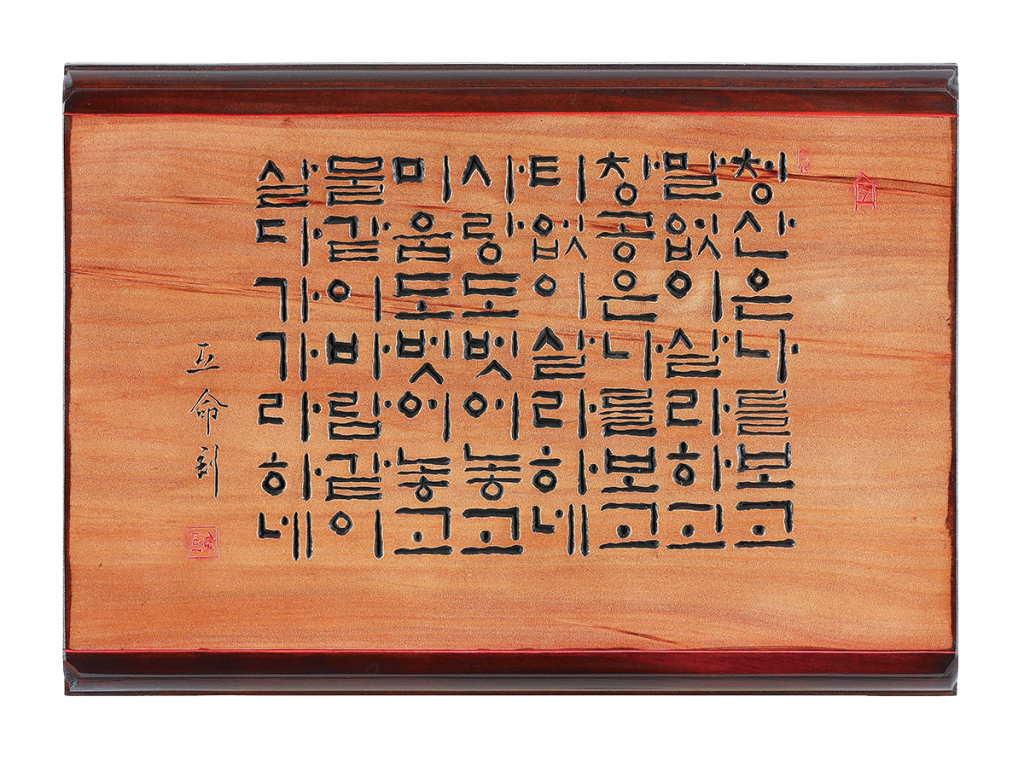 청산은나를보고
말없이살라하고
창공은나를보고
티없이살라하네
사랑도벗어놓고
미움도벗어놓고
물같이바람같이
살다가가라하네
命刻